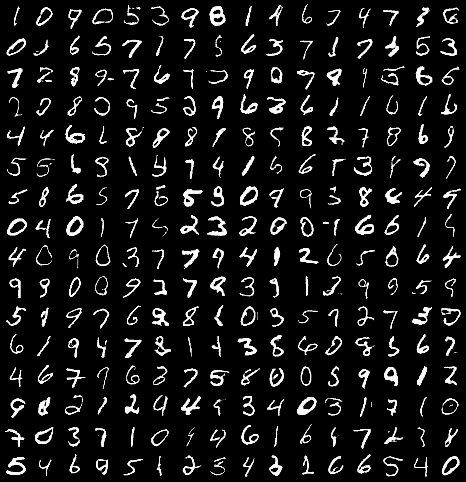 1 0 9 0 5 3 9 8 1 4 6 7 4 7 3 6
0 1 6 5 7 1 7 5 6 3 7 1 7 4 5 3
7 2 8 9 7 6 7 9 0 9 8 9 5 6 6
2 9 8 0 9 5 2 9 6 3 6 1 1 0 1 6
4 4 6 1 8 8 8 1 8 5 8 2 7 8 6 9
5 5 6 8 1 4 7 4 1 6 6 5 3 8 9 7
5 8 6 5 7 5 5 3 0 9 9 3 8 6 4 9
0 4 0 1 7 5 2 3 2 0 0 7 6 6 1 9
4 0 9 0 3 7 7 9 4 1 2 6 5 0 6 4
9 9 0 0 9 2 7 8 3 9 1 3 9 9 5 8
5 1 9 7 6 2 8 1 0 3 5 7 2 7 3 0
6 1 9 4 7 8 1 4 3 8 6 0 8 5 6 7
4 6 7 9 6 3 7 5 8 0 0 5 9 9 1 2
9 8 2 1 2 9 4 5 3 4 0 3 1 7 1 0
7 0 3 7 1 0 9 4 6 1 6 4 7 2 3 8
5 4 6 9 5 1 2 3 4 2 1 6 6 5 4 0